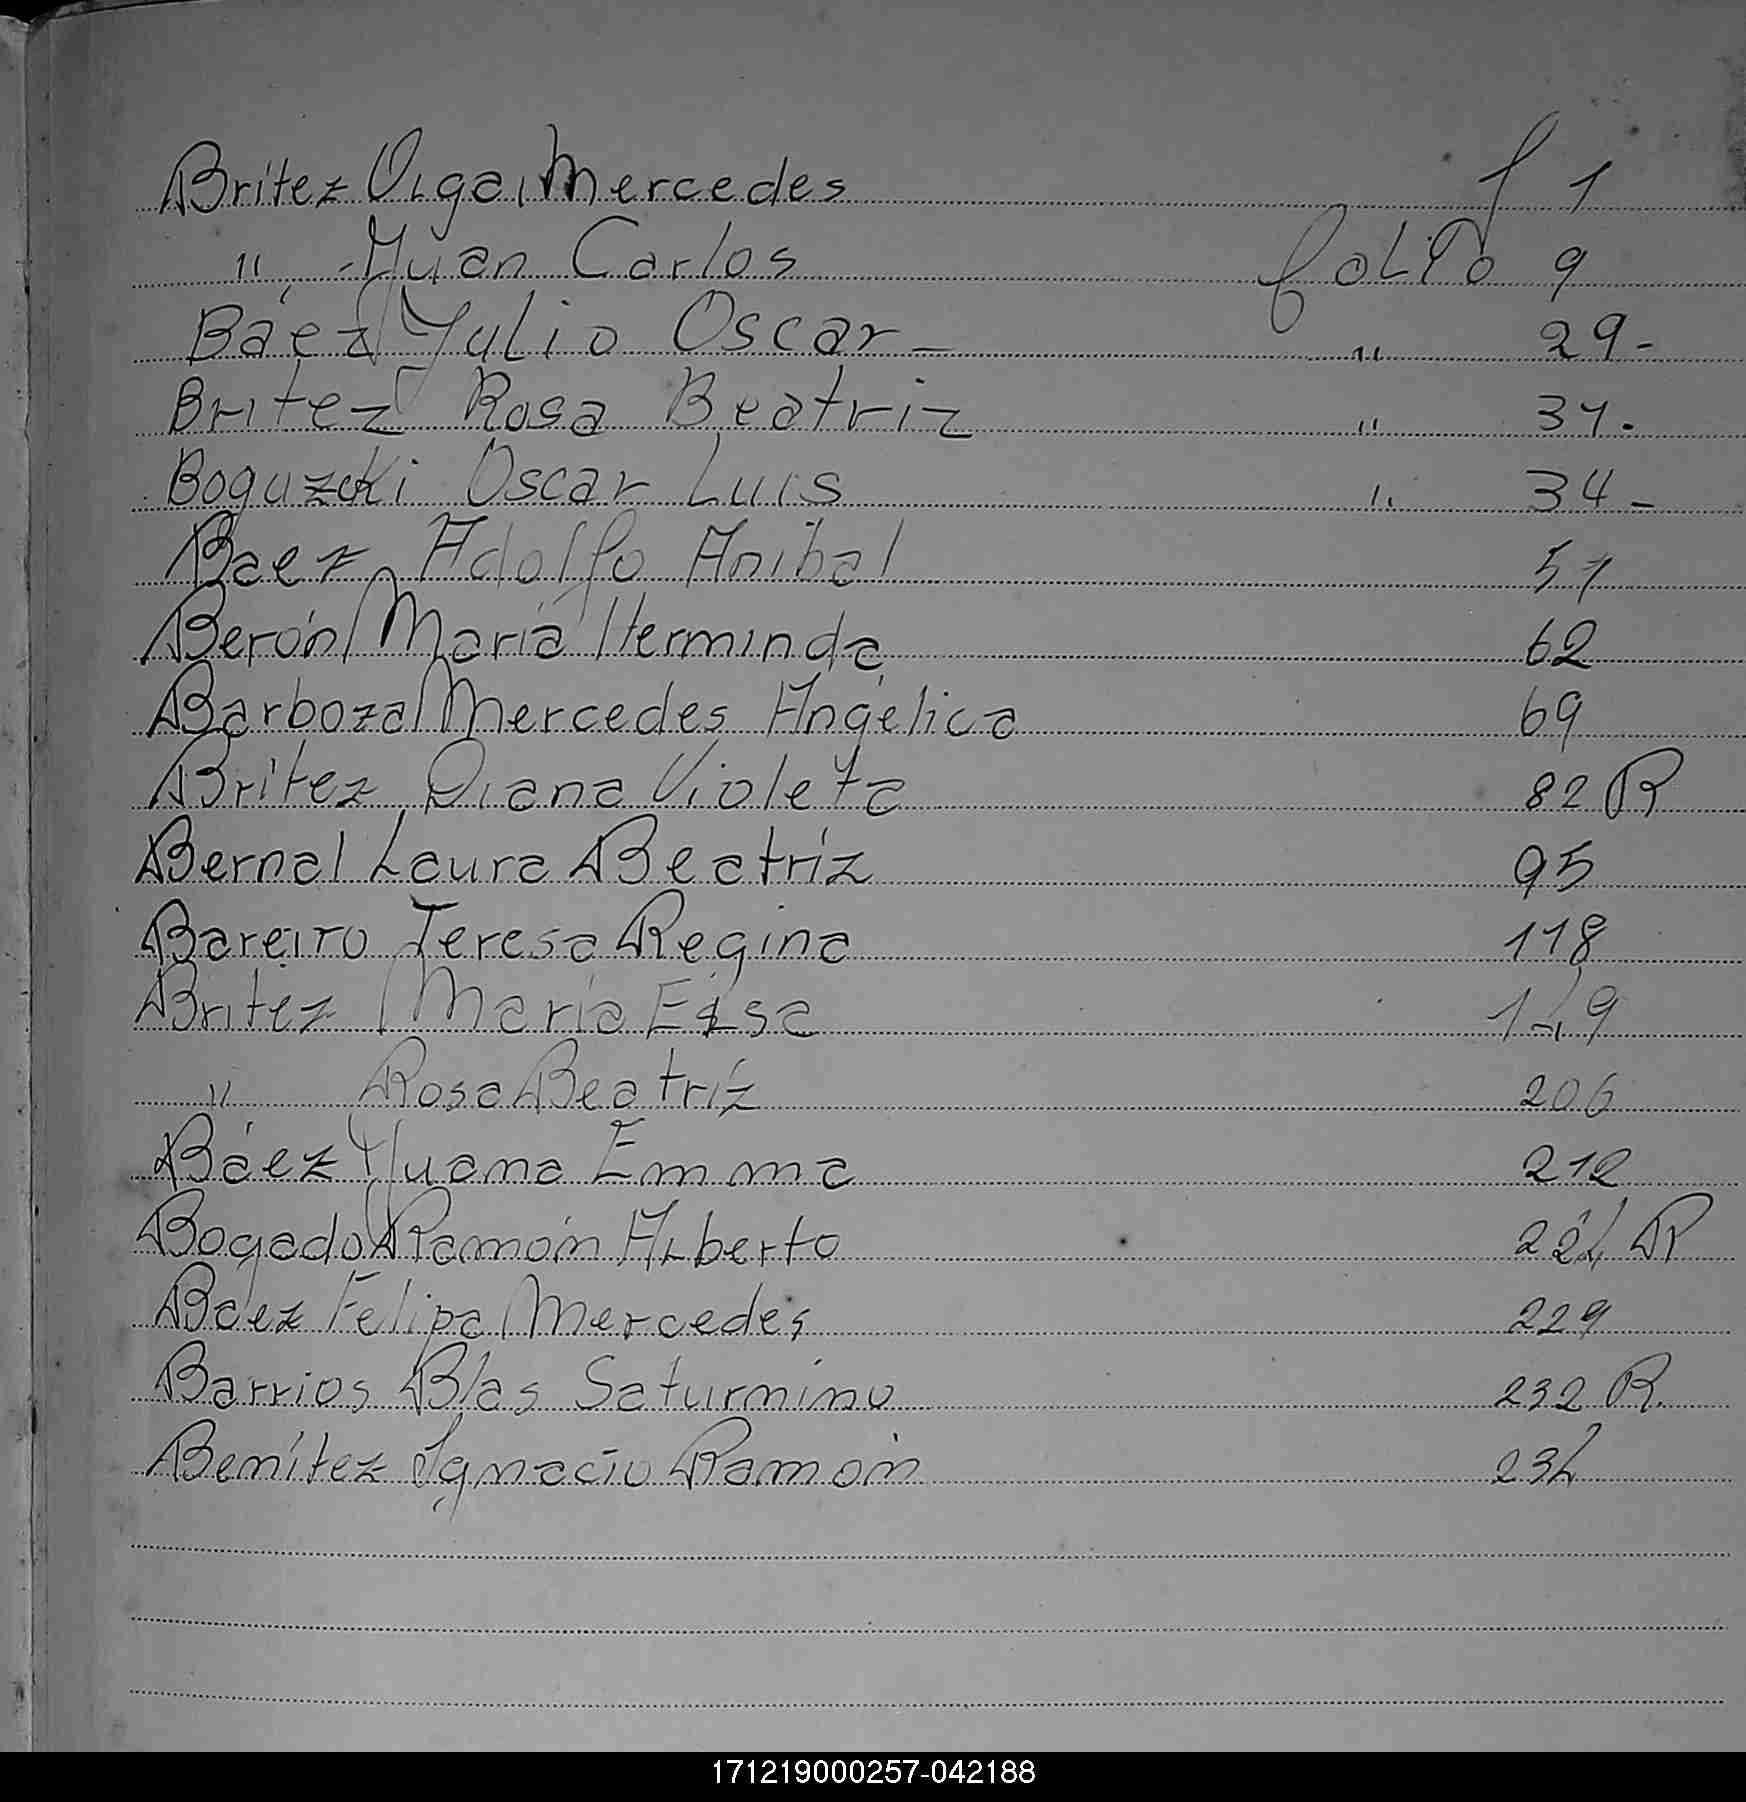 Britez Olga Mercedes f 1
" Juan Carlos folio 9
Báez Julio Oscar - " 29-
Britez Rosa Beatriz " 31.
Boguzcki Oscar Luis " 34-
Baez Adolfo Anibal 51
Berón María Herminda 62
Barboza Mercedes Angélica 69
Britez Diana Violeta 82 R
Bernal Laura Beatríz 95
Bareiro Teresa Regina 118
Britez María Elsa
" Rosa Beatríz 206
Báez Juana Emma 212
Bogado Ramón Alberto R
Baez Felipa Mercedes 229
Barrios Blas Saturnino 232 R.
Benítez Ignacio Ramón 234
171219000257-042188